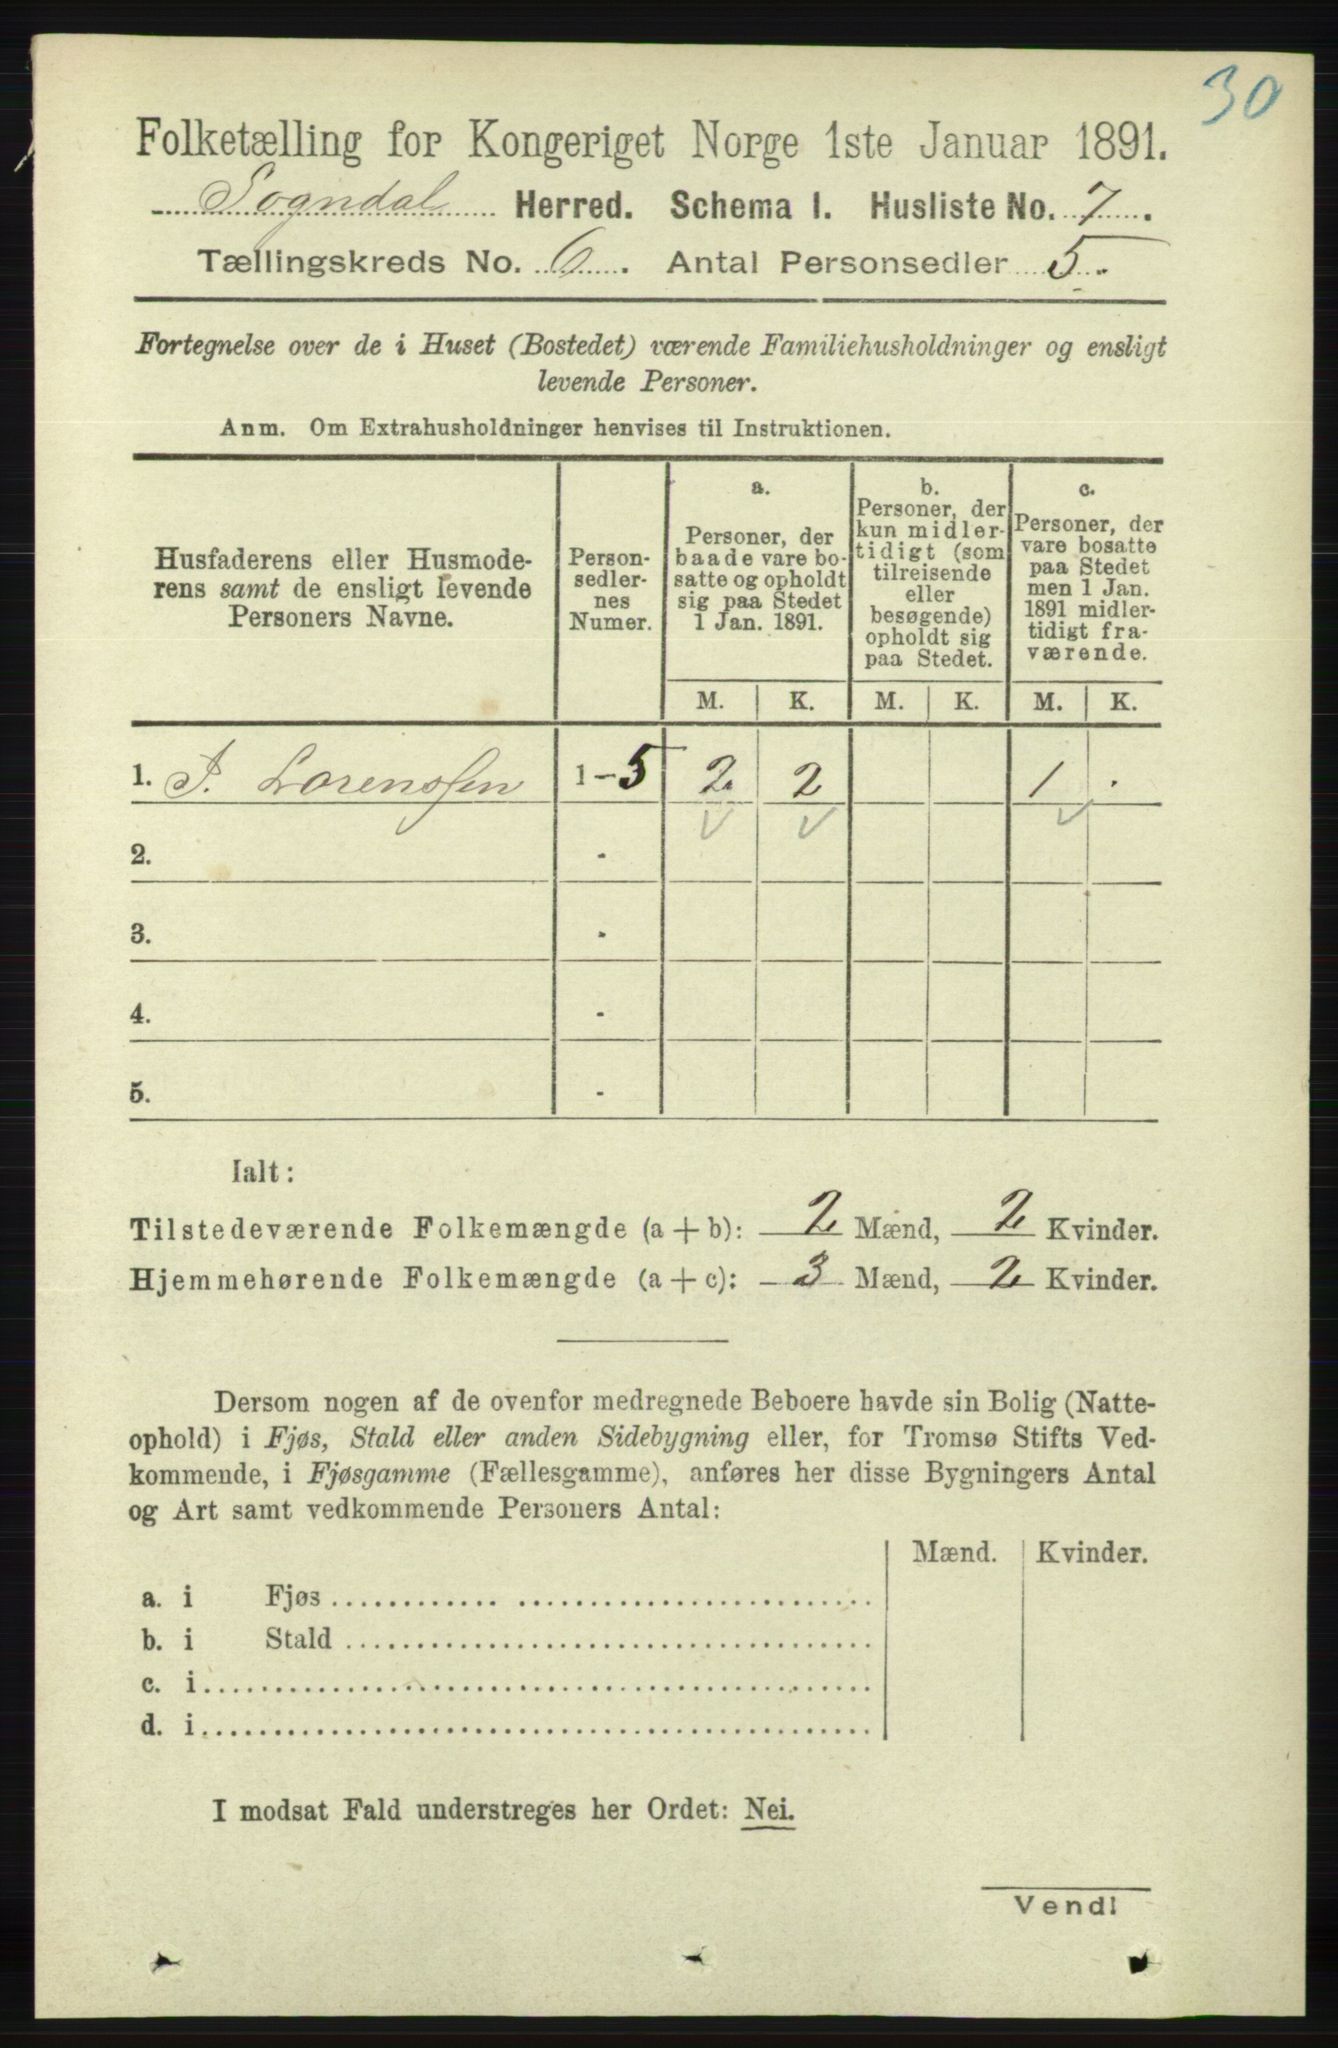 30
Folketælling for Kongeriget Norge 1ste Januar 1891.
Sogndal Herred. Schema I. Husliste No. 7.
Tællingskreds No. 6. Antal Personsedler 5.
Fortegnelse over de i Huset (Bostedet) værende Familiehusholdninger og ensligt
levende Personer.
Anm. Om Extrahusholdninger henvises til Instruktionen.
Husfaderens eller Husmode-
rens samt de ensligt levende
Personers Navne.
Person-
sedler-
nes
Numer.
a.
Personer, der
baade vare bo-
satte og opholdt
sig paa Stedet
1 Jan. 1891.
b.
Personer, der
kun midler-
tidigt (som
tilreisende
eller
besøgende)
opholdt sig
paa Stedet.
c.
Personer, der
vare bosatte
paa Stedet
men 1 Jan.
1891 midler-
tidigt fra-
værende.
M. K. M. K. M. K.
1. J. Lorenssen 1-5 2 2 1 .
2. -
3. -
4. -
5. -
Ialt:
Tilstedeværende Folkemængde (a + b): 2 Mænd, 2 Kvinder.
Hjemmehørende Folkemængde (a + c): 3 Mænd, 2 Kvinder.
Dersom nogen af de ovenfor medregnede Beboere havde sin Bolig (Natte-
ophold) i Fjøs, Stald eller anden Sidebygning eller, for Tromsø Stifts Ved-
kommende, i Fjøsgamme (Fællesgamme), anføres her disse Bygningers Antal
og Art samt vedkommende Personers Antal:
Mænd. Kvinder.
a. i Fjøs
b. i Stald
c. i
d. i
I modsat Fald understreges her Ordet: Nei.
Vend!